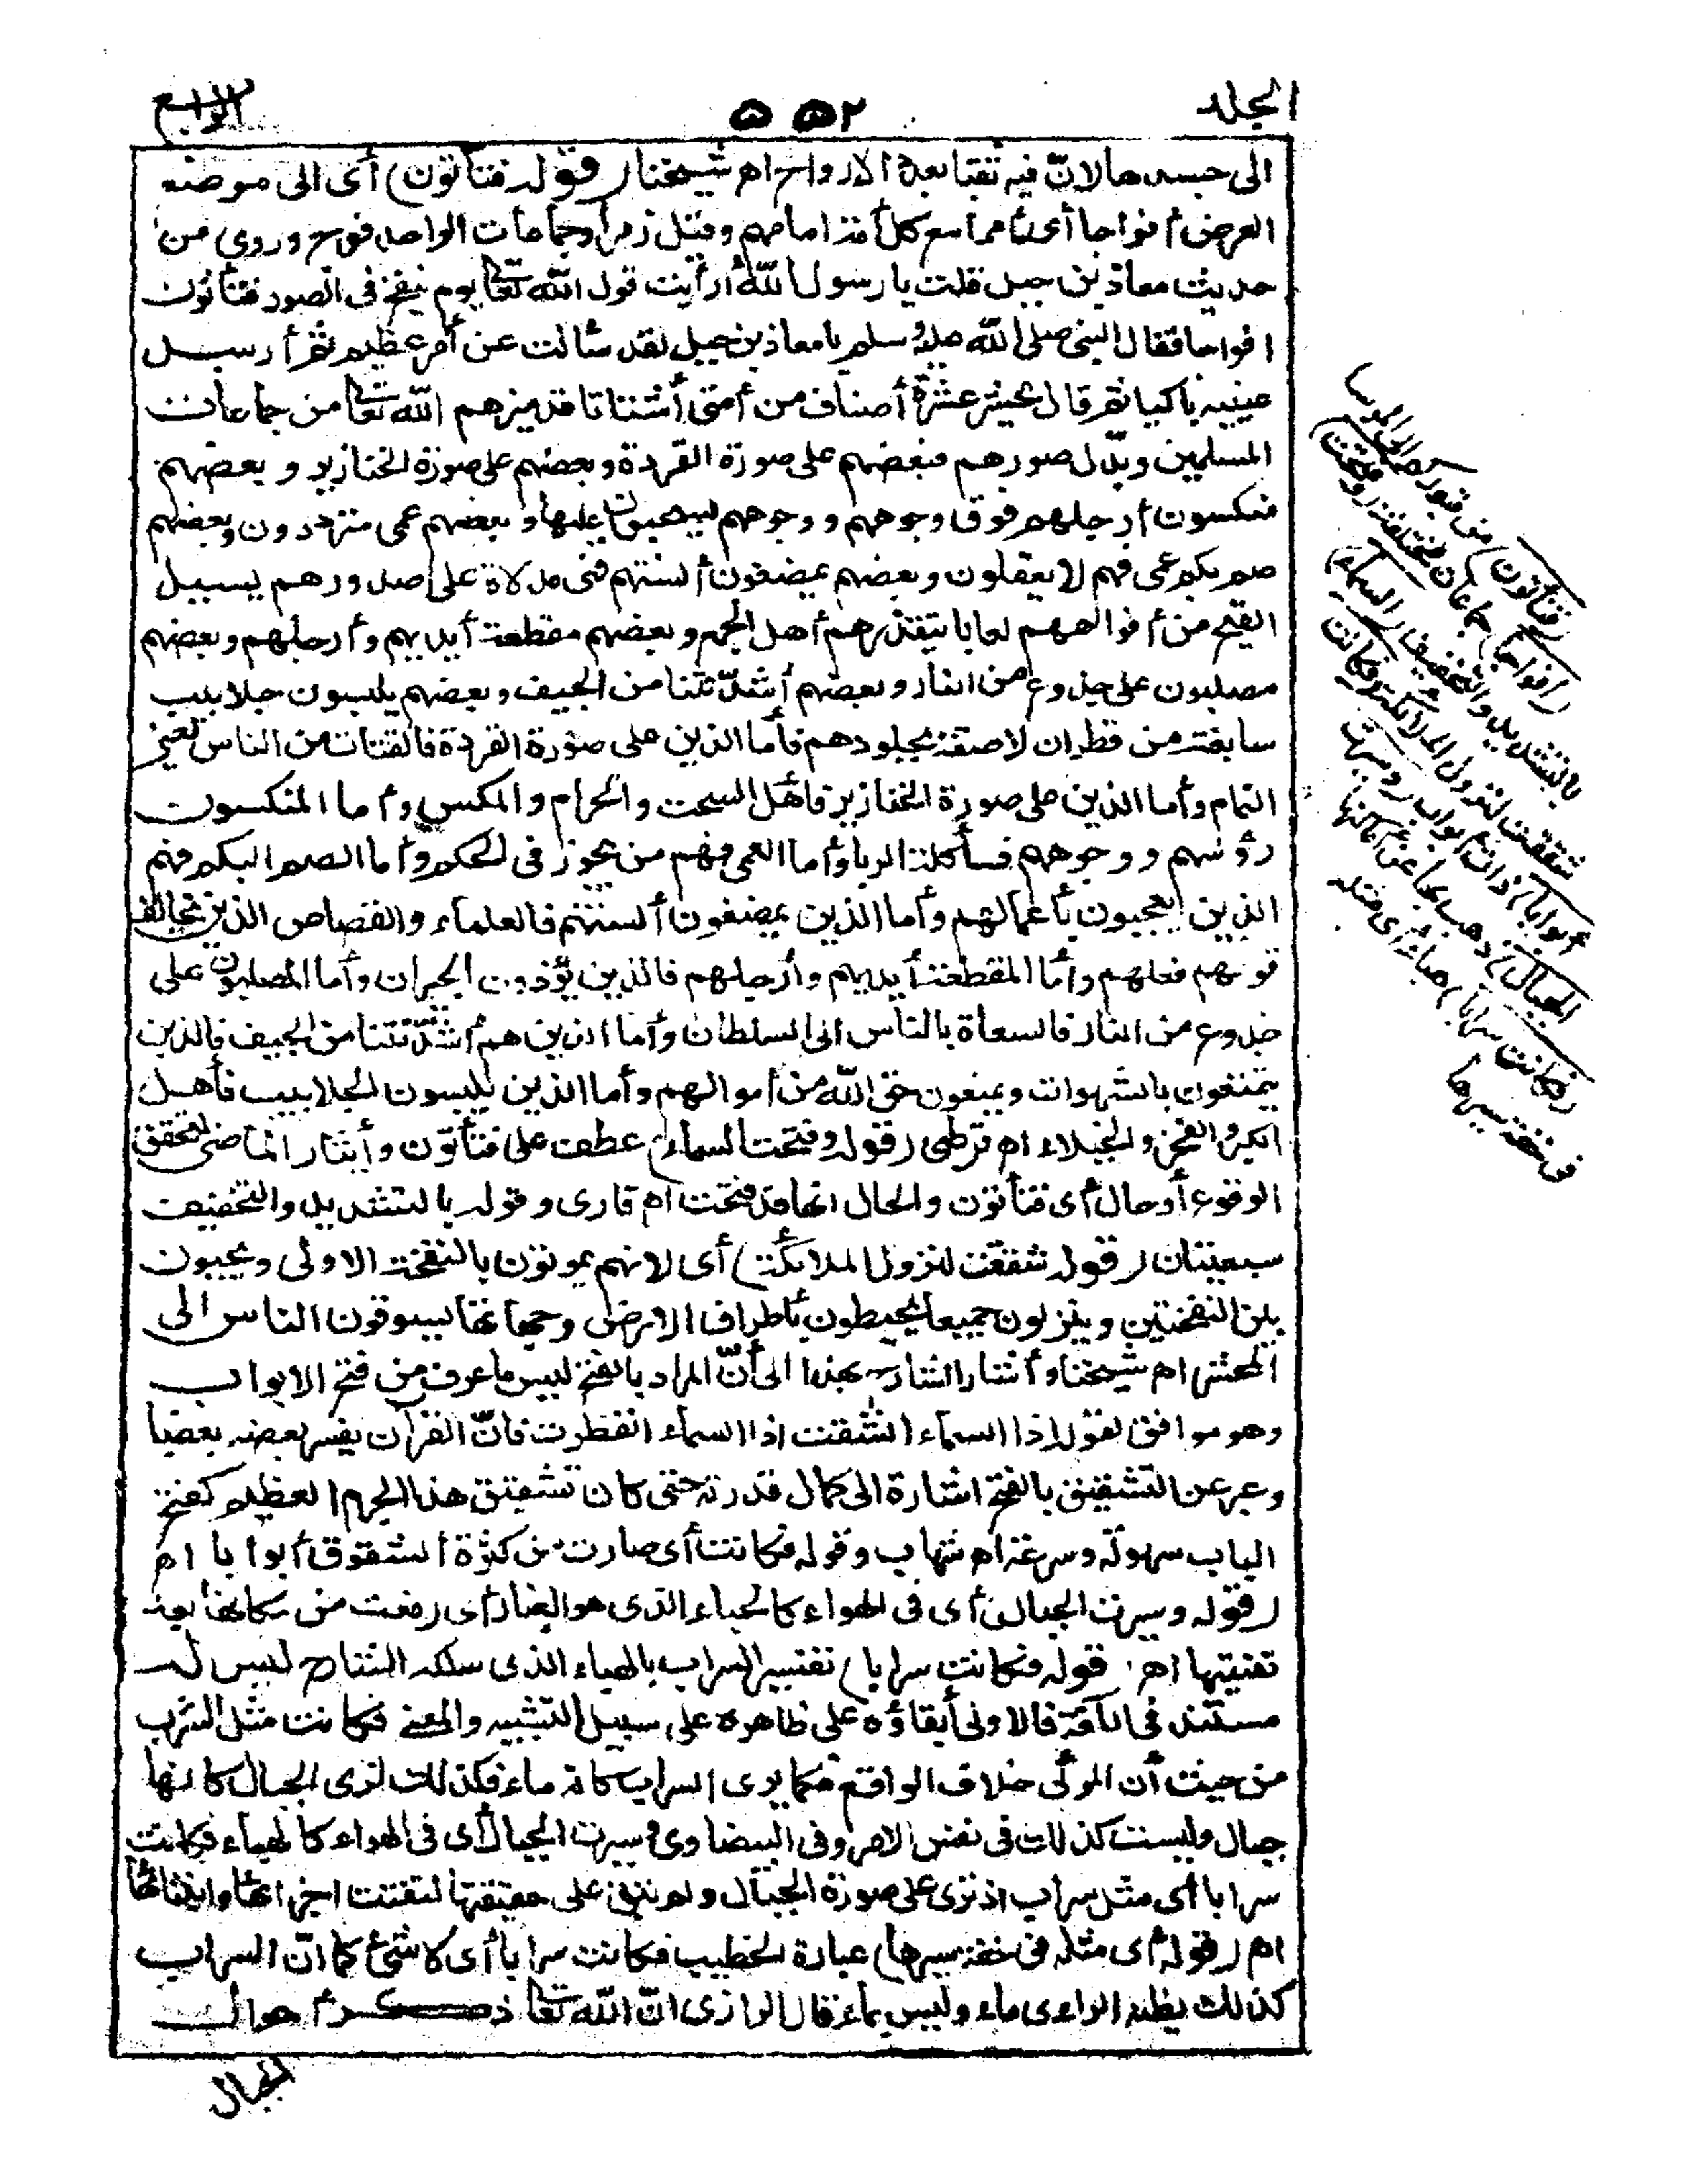 الجلد
٥٥٢
الرابع
الى جسدها لانّ فيه ثقبا بعدة الارواح اه شيخنا (قوله فتأتون) أى الى موضع
العرض أفواجا أى أمما مع كل أمة امامهم وقيل زمرا وجماعات الواحد فوج وروي من
حديث معاذ بن جبل قلت يا رسول الله أرأيت قول الله تعا يوم ينفخ فى الصور فتأتون
افواجا فقال النبى صلى الله عليه وسلم يا معاذ بن جبل لقد سألت عن أمر عظيم ثم أرسل
عينيه باكيا ثم قال يحشر عشرة أصناف من أمتى أشتاتا قد ميزهم الله تعا من جماعات
المسلمين وبدّل صورهم فبعضهم على صورة القردة وبعضهم على صورة الخنازير وبعضهم
منكسون أرجلهم فوق وجوههم ووجوههم يسحبون عليها وبعضهم عمى مترددون وبعضهم
صم بكم عمى فهم لا يعقلون وبعضهم يمضغون ألسنتهم فهى مدلاة على صدورهم يسيل
القيح من أفواههم لعابا يتقذرهم أهل الجمع وبعضهم مقطعة أيديهم وأرجلهم وبعضهم
مصلبون على جذوع من النار وبعضهم أشدّ نتنا من الجيف وبعضهم يلبسون جلابيب
سابغة من قطران لاصقة بجلودهم فأما الذين على صورة القردة فالقتات من الناس يعنى
النمام وأما الذين على صورة الخنازير فأهل السحت والحرام والمكس وأما المنكسون
رؤسهم ووجوههم فأكلة الربا وأما العمى فهم من يجوز فى الحكم وأما الصم البكم فهم
الذين يعجبون بأعمالهم وأما الذين يمضغون ألسنتهم فالعلماء والقصاص الذين يخالف
قولهم فعلهم وأما المقطعة أيديهم وأرجلهم فالذين يؤذون الجيران وأما المصلبون على
جذوع من النار فالسعاة بالناس الى السلطان وأما الذين هم أشدّ نتنا من الجيف فالذين
يتمتعون بالشهوات ويمنعون حق الله من أموالهم وأما الذين يلبسون الجلابيب فأهل
الكبر والفخر والخيلاء اه قرطبى (قوله وفتحت السماء) عطف على فتأتون وأيثار الماضى لتحقق
الوقوع أو حال أى فتأتون والحال انها قد فتحت اه قارى وقوله بالتشديد والتخفيف
سبعيتان (قوله شققت لنزول الملائكة) أى لانهم يموتون بالنفخة الاولى ويحيون
بين النفختين وينزلون جميعا يحيطون بأطراف الارض وجهاتها يسوقون الناس الى
المحشر اه شيخنا وأشار الشارح بهذا الى أنّ المراد بالفتح ليس ما عرف من فتح الابواب
وهو موافق لقوله اذا السماء انشقت اذا السماء انفطرت فانّ القرآن يفسر بعضه بعضا
وعبر عن التشقيق بالفتح اشارة الى كمال قدرته حتى كان تشقيق هذا الجرم العظيم كفتح
الباب سهولة وسرعة اه شهاب وقوله فكانت أى صارت من كثرة الشقوق أبوابا اه
(قوله وسيرت الجبال) أى فى الهواء كالهباء الذى هو الغبار أى رفعت من مكانها بعد
تفتيتها اه (قوله فكانت سرابا) تفسير السراب بالهباء الذى سلكه الشارح ليس له
مستند فى اللغة فالاولى أبقاؤه على ظاهره على سبيل التشبيه والمعنى فكانت مثل السراب
من حيث أن المرئى خلاف الواقع فكما يرى السراب كانه ماء فكذلك ترى الجبال كانها
جبال وليست كذلك فى نفس الامر وفى البيضاوى وسيرت الجبال أى فى الهواء كالهباء فكانت
سرابا أى مثل سراب اذ ترى على صورة الجبال ولم تبق على حقيقتها لتفتت اجزائها وانبثاثها
اه (قوله أى مثله فى خفة سيرها) عبارة الخطيب فكانت سرابا أى كلا شئ كما انّ السراب
كذلك يظنه الراءى ماء وليس بماء قال الرازى انّ الله تعا ذكر أحوال
الجبال
(فتأتون) من قبوركم الى الموقف
(أفواجا) جماعات مختلفة (وفتحت
بالتشديد والتخفيف (السماء)
شققت لنزول الملائكة (فكانت
أبوابا) ذات أبواب (وسيرت
الجبال) ذهب بها عن أماكنها
(فكانت سرابا) هباء أى مثله
فى خفة سيرها